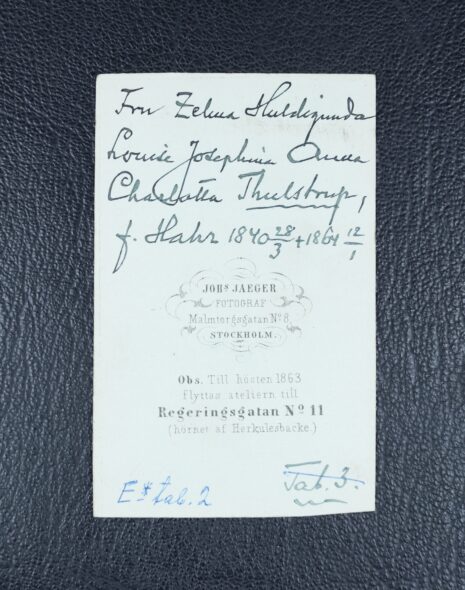 Fru Zelma Huldigunda
Louise Josephina Anna
Charlotta Thulstrup,
f. Hahr 1840 28/3 + 1864 12/1
JOHS JAEGER
FOTOGRAF
Malmtorgsgatan No 8,
STOCKHOLM.
Obs. Till hösten 1863
flyttas ateliern till
Regeringsgatan No 11
(hörnet af Herkulesbacke.)
tab. 2
Tab. 3.